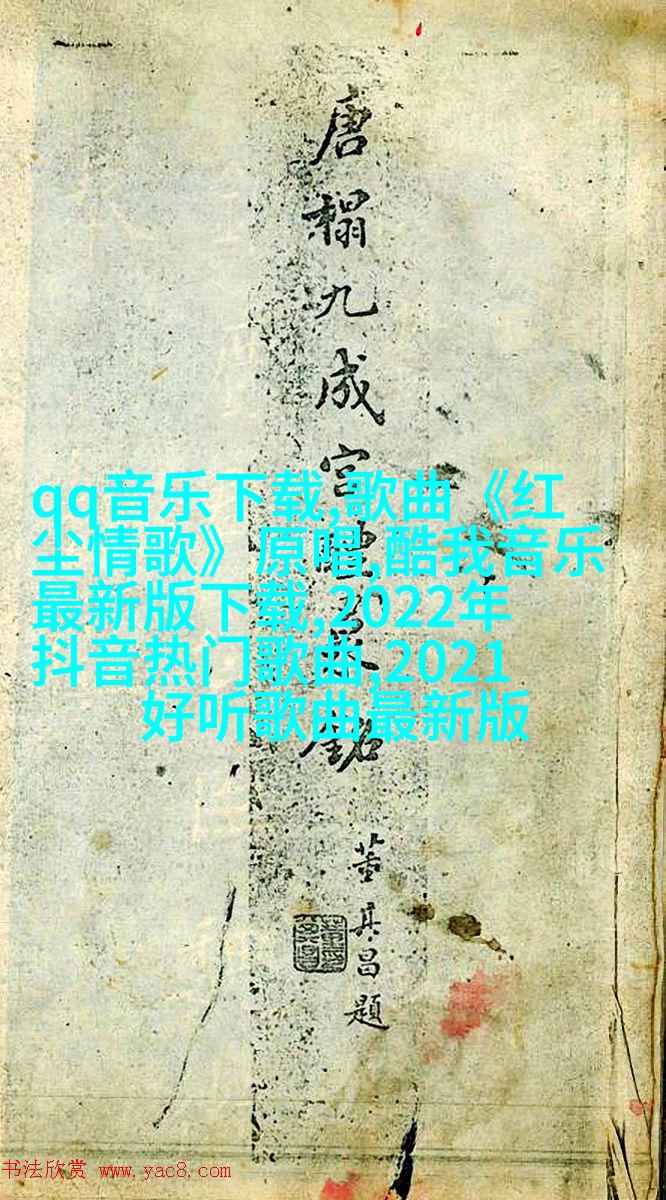 唐榻九成宮醴泉銘
董其昌題
qq音乐下载,歌曲《红
尘情歌》原唱,酷我音乐
最新版下载,2022年
抖音热门歌曲,2021
好听歌曲最新版
书法欣赏 www.yac8.com